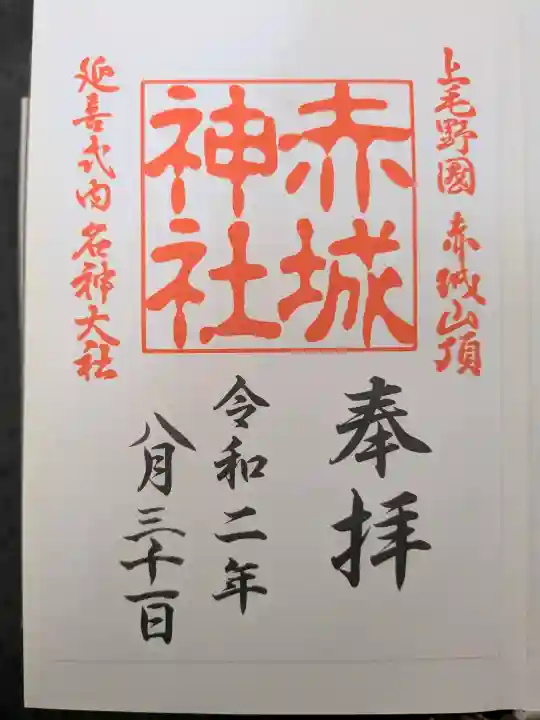 上毛野國 赤城山頂
赤城
神社
延喜式内名神大社
奉拝
令和二年
八月三十一日